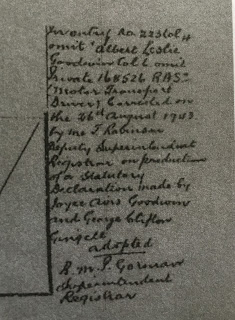 In entry No. 223 Col 4
omit "Albert Leslie
Goodwin Col 6 omit
Private 168526 RASC
(Motor Transport
Driver) Corrected on
the 26th August 1943
by me F. Robinson
Deputy Superintendent
Registrar on production
of a Statutory
Declaration made by
Joyce Airs Goodwin
and George Clifton
Gingell
adopted
R. M. P. Gorsuav
Superintendent
Registrar